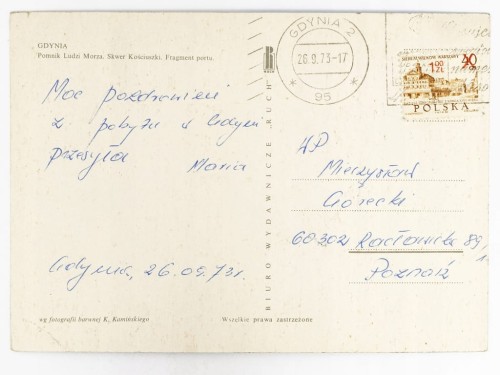 GDYNIA
Pomnik Ludzi Morza. Skwer Kościuszki. Fragment portu.
Moc pozdrowień
z pobytu w Gdyni
przesyła Maria
Gdynia, 26.09.73r.
wg fotografii barwnej K. Kamińskiego
BIURO WYDAWNICZE „RUCH"
Wszelkie prawa zastrzeżone
GDYNIA 2
26.9.73-17
* 95 *
40
1,00
ZŁ
POLSKA
WP
Mieczysław
Górecki
60302 Racławicka 89
Poznań